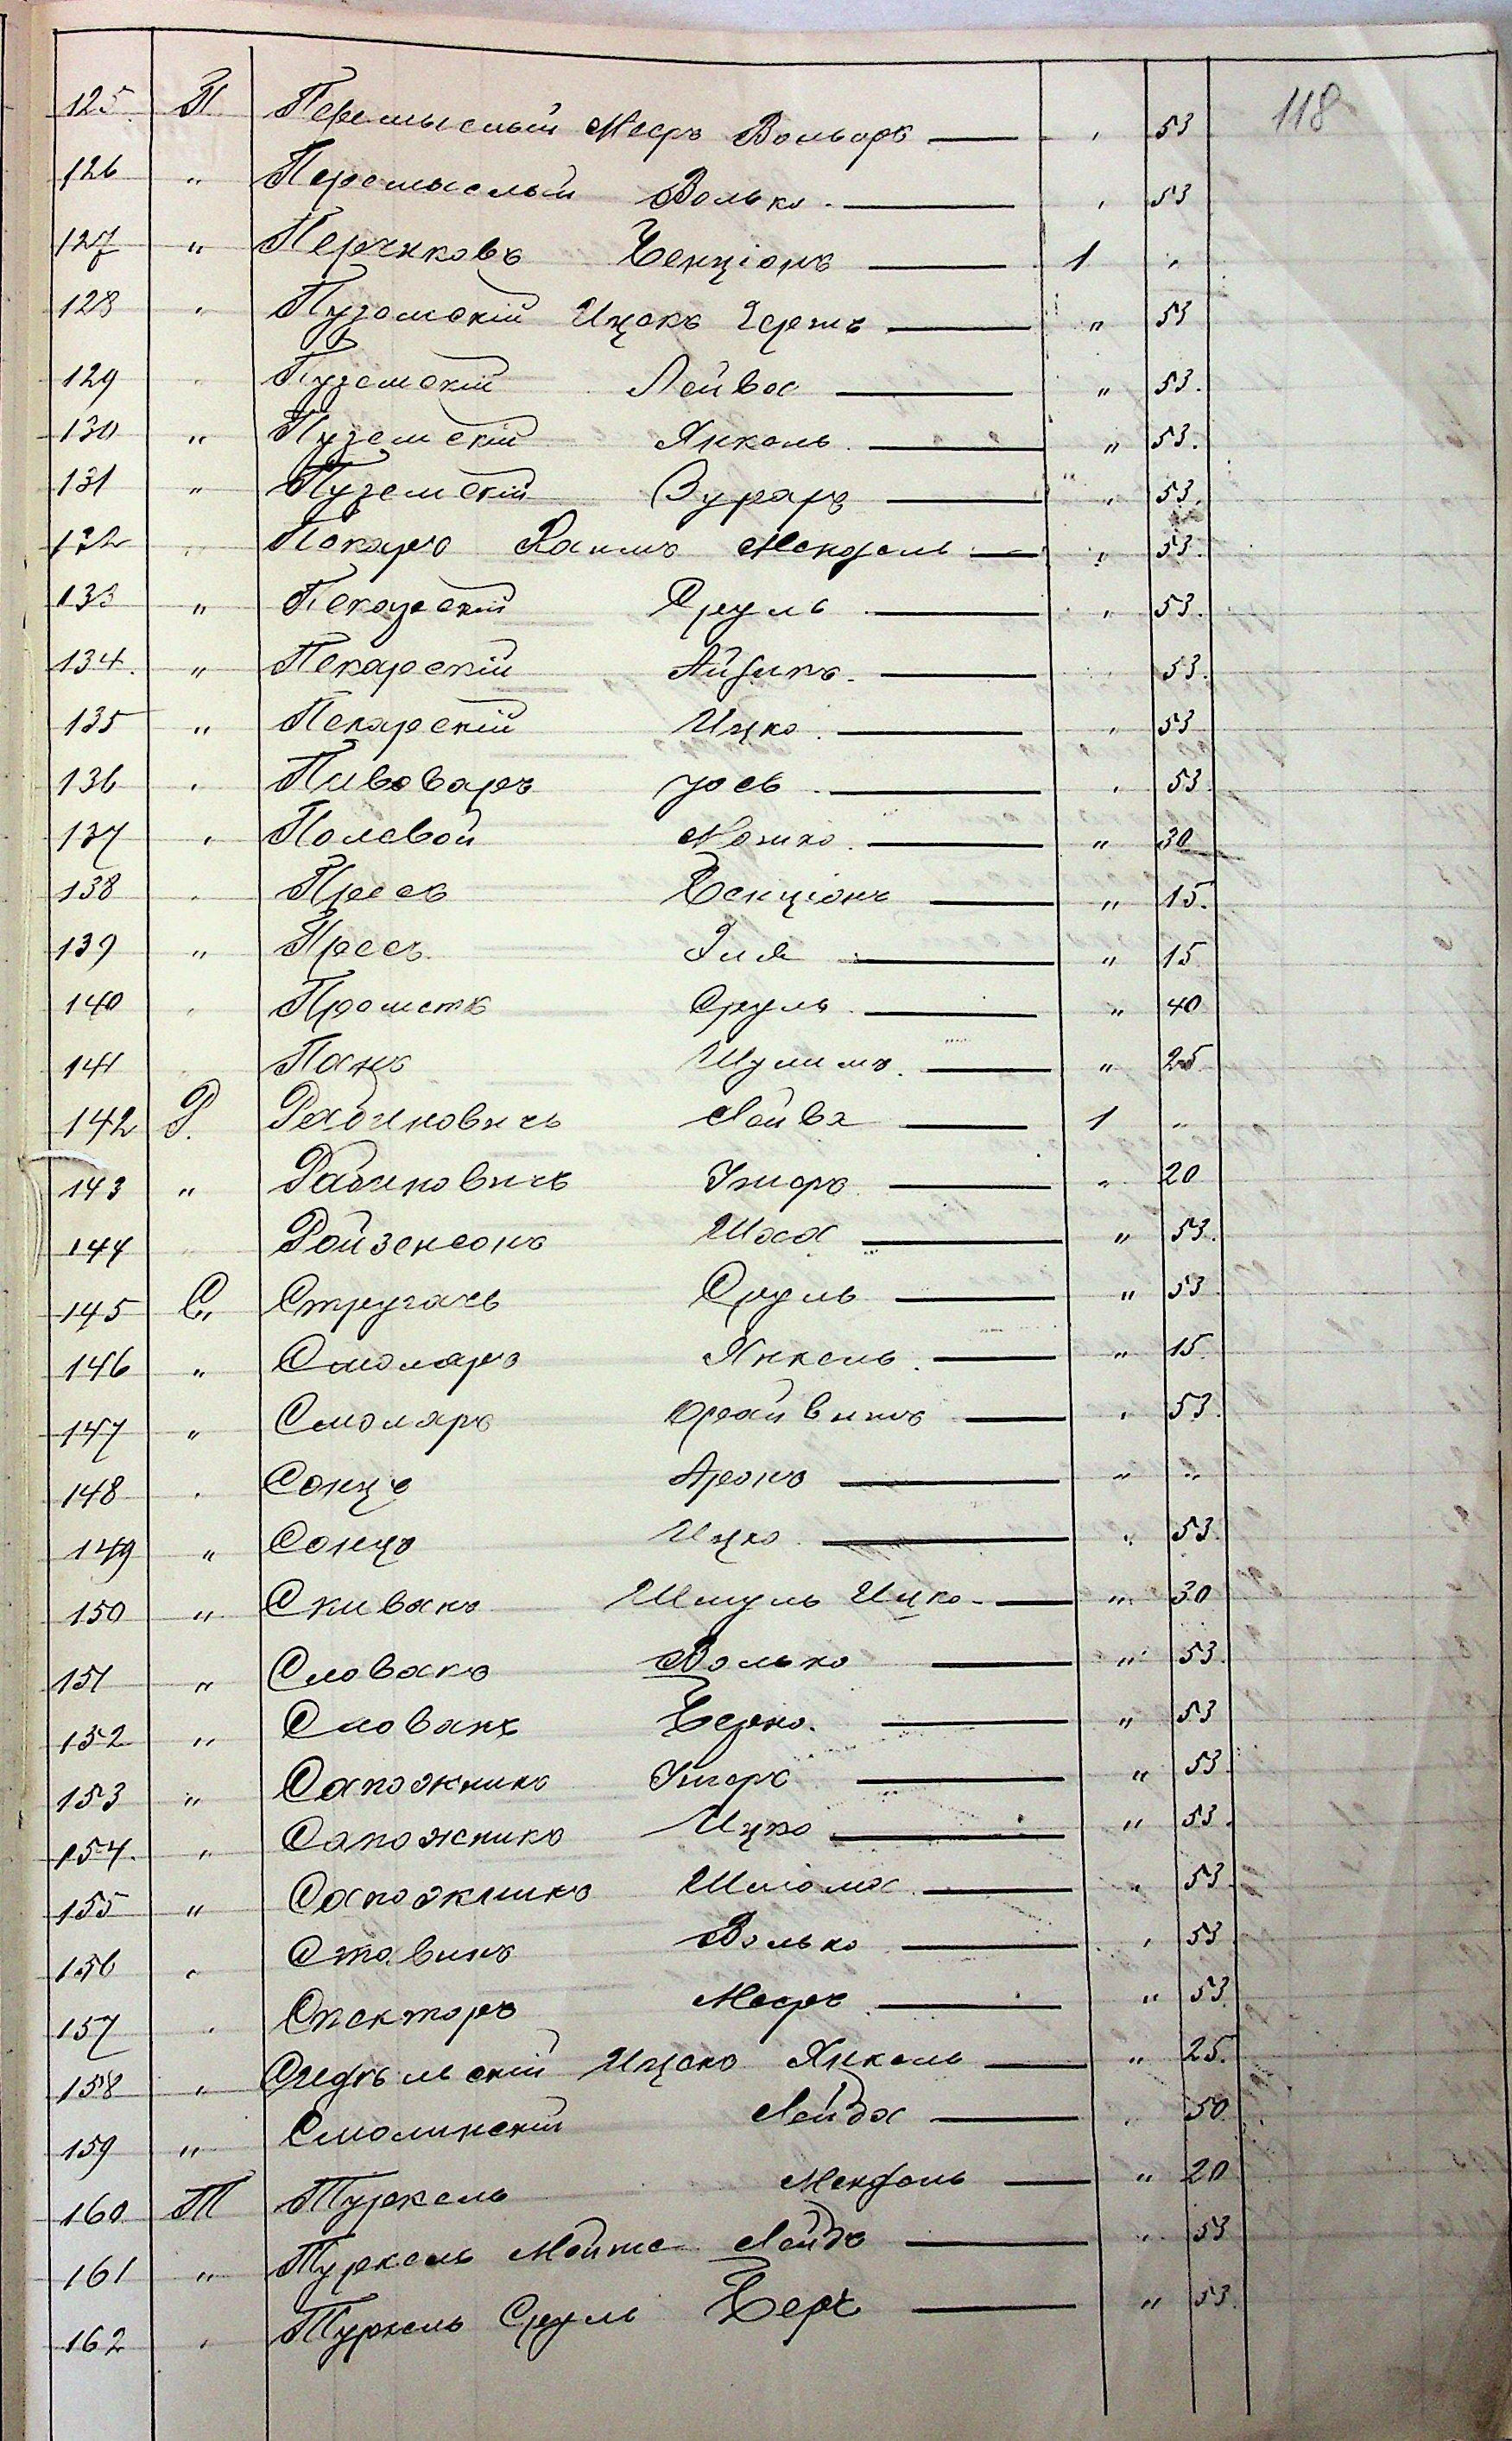 118
125. П Перемыслый Меєръ Вольоръ — „ 53
126 „ Перемыслый Волько. — „ 53
127 „ Перчиковъ Бенціонъ — 1 „
128 „ Пуземскій Ицекъ Гершъ — „ 53
129 „ Пуземскій Лейва — „ 53.
130 „ Пуземскій Янкель. — „ 53.
131 „ Пуземскій — „ 53.
132 „ Пекаръ Хаимъ Мендель — „ 53.
133 „ Пекарскій Сруль — „ 53.
134. „ Пекарскій Айзикъ. — „ 53.
135 „ Пекарскій Ицко. — „ 53
136 „ Пивоваръ Iось — „ 53.
137 „ Полевой Мошко. — „ 30
138 „ Пресъ Бенціонъ — „ 15.
139 „ Пресъ. Эля — „ 15
140 „ Сруль. — „ 40
141 „ Панъ Шулимъ. — „ 25
142 Р. Рабиновичъ Лейва — 1 „
143 „ Рабиновичъ Кисиръ — „ 20
144 „ Ройзенсонъ Шая — „ 53.
145 С. Стругачъ Сруль — „ 53
146 „ Смоляръ Янкель. — „ 15.
147 „ Смоляръ Фрайвишъ — „ 53.
148 „ Сонцъ Аронъ — „ „
149 „ Сонцъ Ицко. — „ 53.
150 „ Спивакъ Шмуль Ицко. — „ 30
151 „ Словакъ Волько — „ 53.
152 „ Словакъ Берко. — „ 53
153 „ Сапожникъ — „ 53.
154. „ Сапожникъ Ицко — „ 53.
155 „ Сапожникъ Шлома. — „ 53.
156 „ Ставикъ Волько — „ 53
157 „ Спекторъ Меєръ. — „ 53.
158 „ Ицекъ Янкель — „ 25.
159 „ Смолинскій Лейба — „ 50.
160 Т Туркель Мендель — „ 20
161 „ Туркель Мойше Лейбъ — „ 53
162 „ Туркель Сруль Беръ — „ 53.